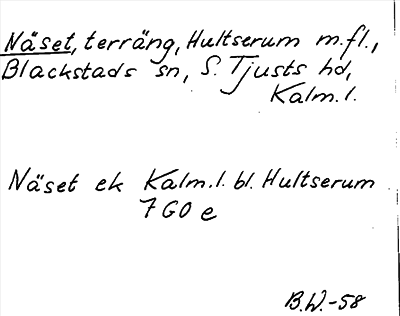 Näset, terräng, Hultserum m.fl.,
Blackstads sn, S. Tjusts hd,
Kalm.l.
Näset ek Kalm.l. bl. Hultserum
7 G0 e
B.W.-58